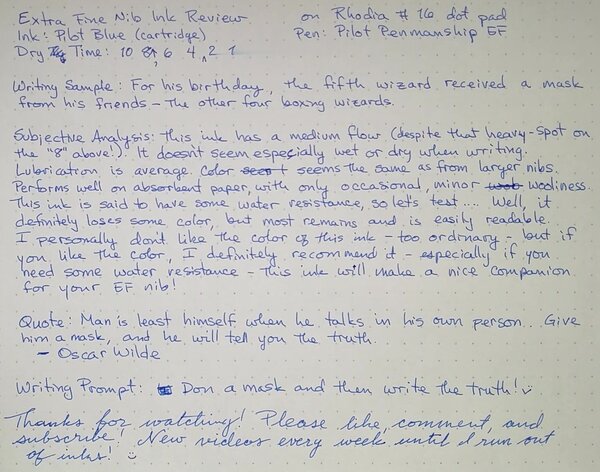 Extra Fine Nib Ink Review on Rhodia #16 dot pad
Ink: Pilot Blue (cartridge) Pen: Pilot Penmanship EF
Dry Time: 10 8 6 4 2 1
Writing Sample: For his birthday, the fifth wizard received a mask
from his friends - the other four boxing wizards.
Subjective Analysis: This ink has a medium flow (despite that heavy-spot on
the "8" above!). It doesn't seem especially wet or dry when writing.
Lubrication is average. Color seems the same as from larger nibs.
Performs well on absorbent paper, with only occasional, minor wooliness.
This ink is said to have some water resistance, so let's test.... Well, it
definitely loses some color, but most remains and is easily readable.
I personally don't like the color of this ink - too ordinary - but if
you like the color, I definitely recommend it - especially if you
need some water resistance - this ink will make a nice companion
for your EF nib!
Quote: Man is least himself when he talks in his own person... Give
him a mask, and he will tell you the truth.
- Oscar Wilde
Writing Prompt: Don a mask and then write the truth! :)
Thanks for watching! Please like, comment, and
subscribe! New videos every week until I run out
of inks! :)